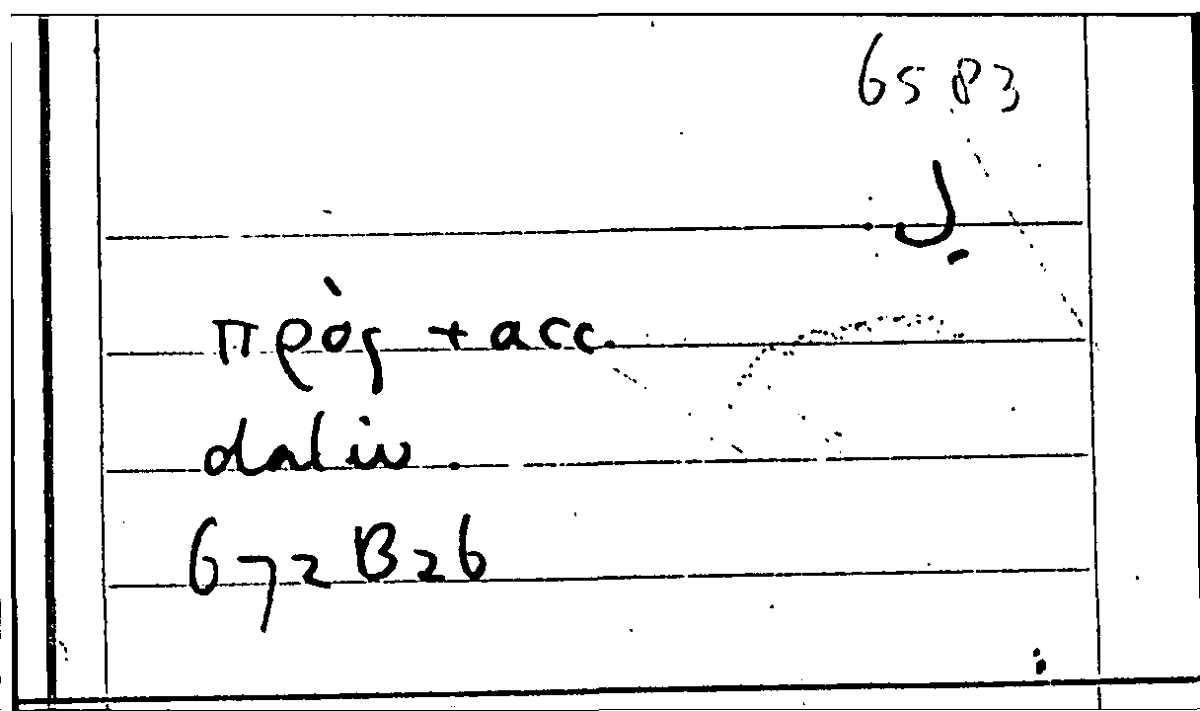 6583
J.
πρὸς + acc.
dativ.
672 B 26